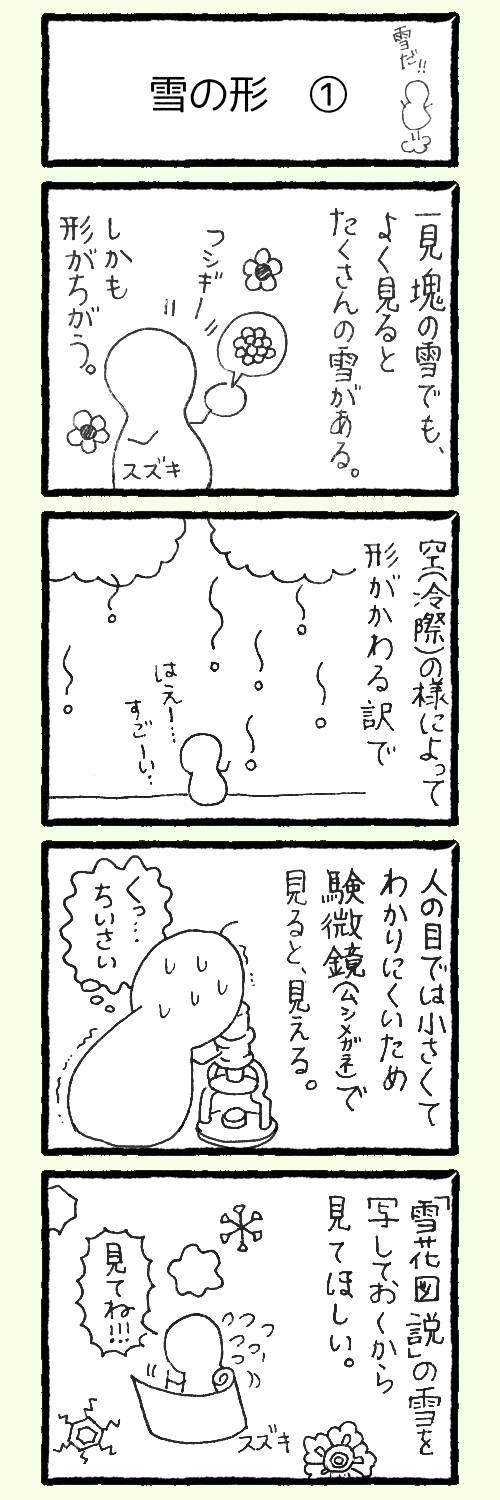 雪の形 ①
雪だ!!
一見塊の雪でも、
よく見ると
たくさんの雪がある。
フシギー
しかも
形がちがう。
スズキ
空(冷際)の様によって
形がかわる訳で
はえー…
すごーい…
人の目では小さくて
わかりにくいため
験微鏡(ムシメガネ)で
見ると、見える。
くっ…
ちいさい
「雪花図説」の雪を
写しておくから
見てほしい。
見てね!!!
スズキ